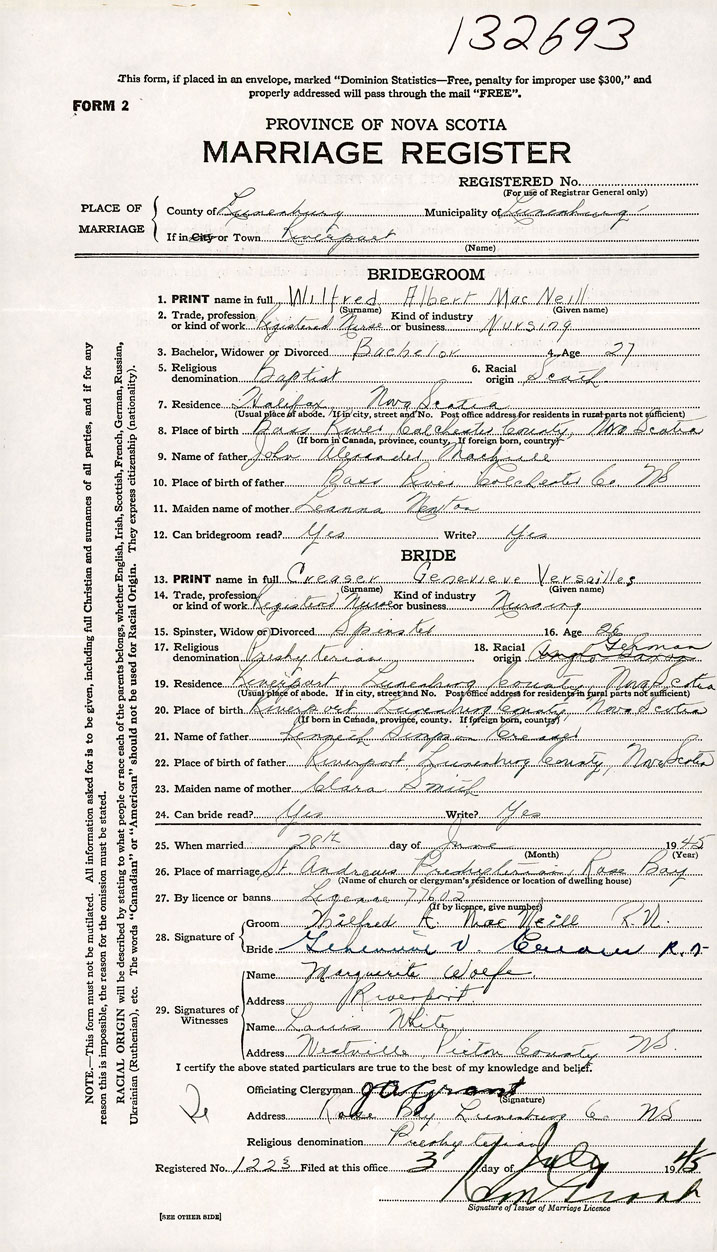 132693
This form, if placed in an envelope, marked "Dominion Statistics—Free, penalty for improper use $300," and
properly addressed will pass through the mail "FREE".
FORM 2
PROVINCE OF NOVA SCOTIA
MARRIAGE REGISTER
REGISTERED No.
(For use of Registrar General only)
PLACE OF MARRIAGE
County of Lunenburg Municipality of Lunenburg
If in City or Town Riverport
(Name)
BRIDEGROOM
1. PRINT name in full Wilfred Albert MacNeill
(Surname) (Given name)
2. Trade, profession or kind of work Registered Nurse Kind of industry or business Nursing
3. Bachelor, Widower or Divorced Bachelor 4. Age 27
5. Religious denomination Baptist 6. Racial origin Scotch
7. Residence Halifax, Nova Scotia
(Usual place of abode. If in city, street and No. Post office address for residents in rural parts not sufficient)
8. Place of birth Bass River Colchester County, Nova Scotia
(If born in Canada, province, county. If foreign born, country)
9. Name of father John Alexander MacNeill
10. Place of birth of father Bass River Colchester Co. NS
11. Maiden name of mother Leanna Newton
12. Can bridegroom read? Yes Write? Yes
BRIDE
13. PRINT name in full Creaser Genevieve Versailles
(Surname) (Given name)
14. Trade, profession or kind of work Registered Nurse Kind of industry or business Nursing
15. Spinster, Widow or Divorced Spinster 16. Age 26
17. Religious denomination Presbyterian 18. Racial origin Anglo Saxon German
19. Residence Riverport Lunenburg County, Nova Scotia
(Usual place of abode. If in city, street and No. Post office address for residents in rural parts not sufficient)
20. Place of birth Riverport Lunenburg County, Nova Scotia
(If born in Canada, province, county. If foreign born, country)
21. Name of father Kenneth Simpson Creaser
22. Place of birth of father Riverport, Lunenburg County, Nova Scotia
23. Maiden name of mother Clara Smith
24. Can bride read? Yes Write? Yes
25. When married 28th day of June 1945
(Month) (Year)
26. Place of marriage St Andrews Presbyterian, Rose Bay
(Name of church or clergyman's residence or location of dwelling house)
27. By licence or banns License 77602
(If by licence, give number)
28. Signature of
Groom Wilfred A. MacNeill R.N.
Bride Genevieve V. Creaser R.N.
29. Signatures of Witnesses
Name Marguerite Wolfe
Address Riverport
Name White
Address Westville, Pictou County NS.
I certify the above stated particulars are true to the best of my knowledge and belief.
Officiating Clergyman Grant
(Signature)
Address Rose Bay Lunenburg Co. NS
Religious denomination Presbyterian
Registered No. 1223 Filed at this office 3 day of July 1945
Signature of Issuer of Marriage Licence
[SEE OTHER SIDE]
NOTE.—This form must not be mutilated. All information asked for is to be given, including full Christian and surnames of all parties, and if for any
reason this is impossible, the reason for the omission must be stated.
RACIAL ORIGIN will be described by stating to what people or race each of the parents belongs, whether English, Irish, Scottish, French, German, Russian,
Ukrainian (Ruthenian), etc. The words "Canadian" or "American" should not be used for Racial Origin. They express citizenship (nationality).